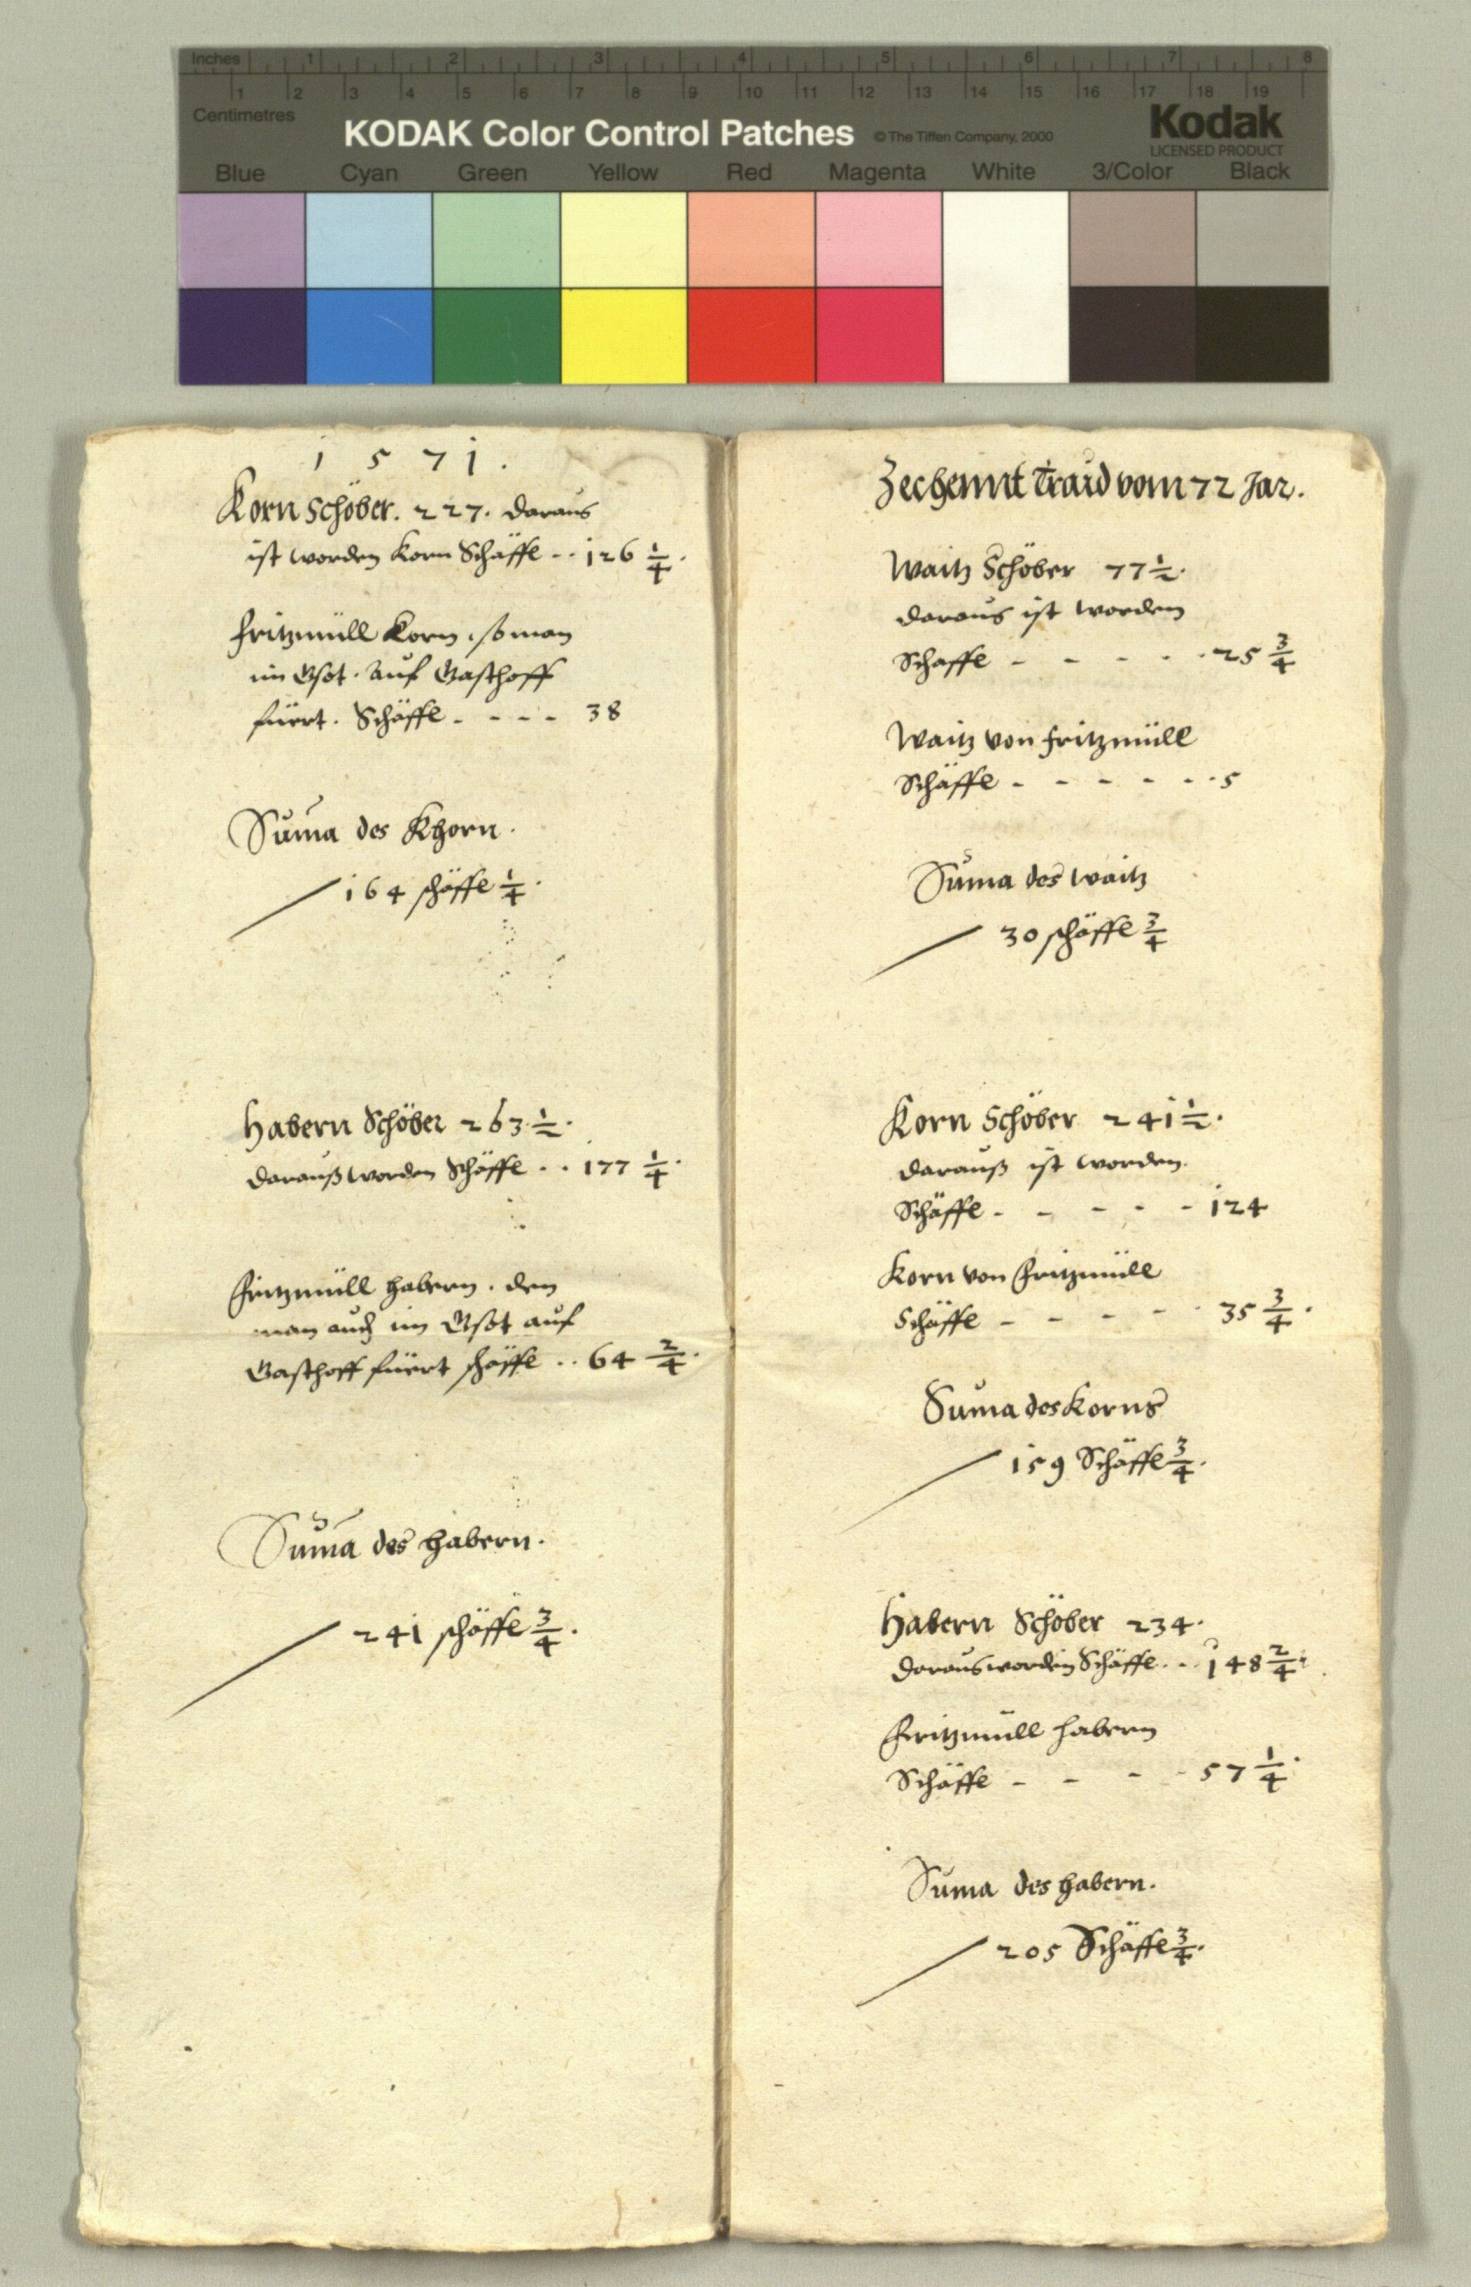 Inches 1 2 3 4 5 6 7 8
1 2 3 4 5 6 7 8 9 10 11 12 13 14 15 16 17 18 19
Centimetres
KODAK Color Control Patches © The Tiffen Company, 2000 Kodak
LICENSED PRODUCT
Blue Cyan Green Yellow Red Magenta White 3/Color Black
1571.
Korn Schöber. 227. daraus
ist worden Korn Schäffe - - 126 1/4.
Fritzmüll Korn, so man
im Gsot. auf Gasthoff
füert. Schäffe - - - - 38
Suma des Khorn.
164 schäffe 1/4.
Habern Schöber 263 1/2.
darauß worden Schäffe - - 177 1/4.
Fritzmüll habern. den
man auch im Gsot auf
Gasthoff füert schäffe - - 64 2/4.
Suma des habern.
241 schäffe 3/4.
Zechennt Traid vom 72 Jar.
Waitz Schöber 77 1/2.
daraus ist worden
Schäffe - - - - - 25 3/4
Waitz von Fritzmüll
Schäffe - - - - - - 5
Suma des waitz
30 schäffe 3/4
Korn Schöber 241 1/2.
darauß ist worden.
Schäffe - - - - - 124
Korn von Fritzmüll
Schäffe - - - - 35 3/4.
Suma des Korns
159 Schäffe 3/4.
Habern Schöber 234.
daraus worden Schäffe - - 148 2/4.
Fritzmüll habern
Schäffe - - - - 57 1/4.
Suma des habern.
205 Schäffe 3/4.